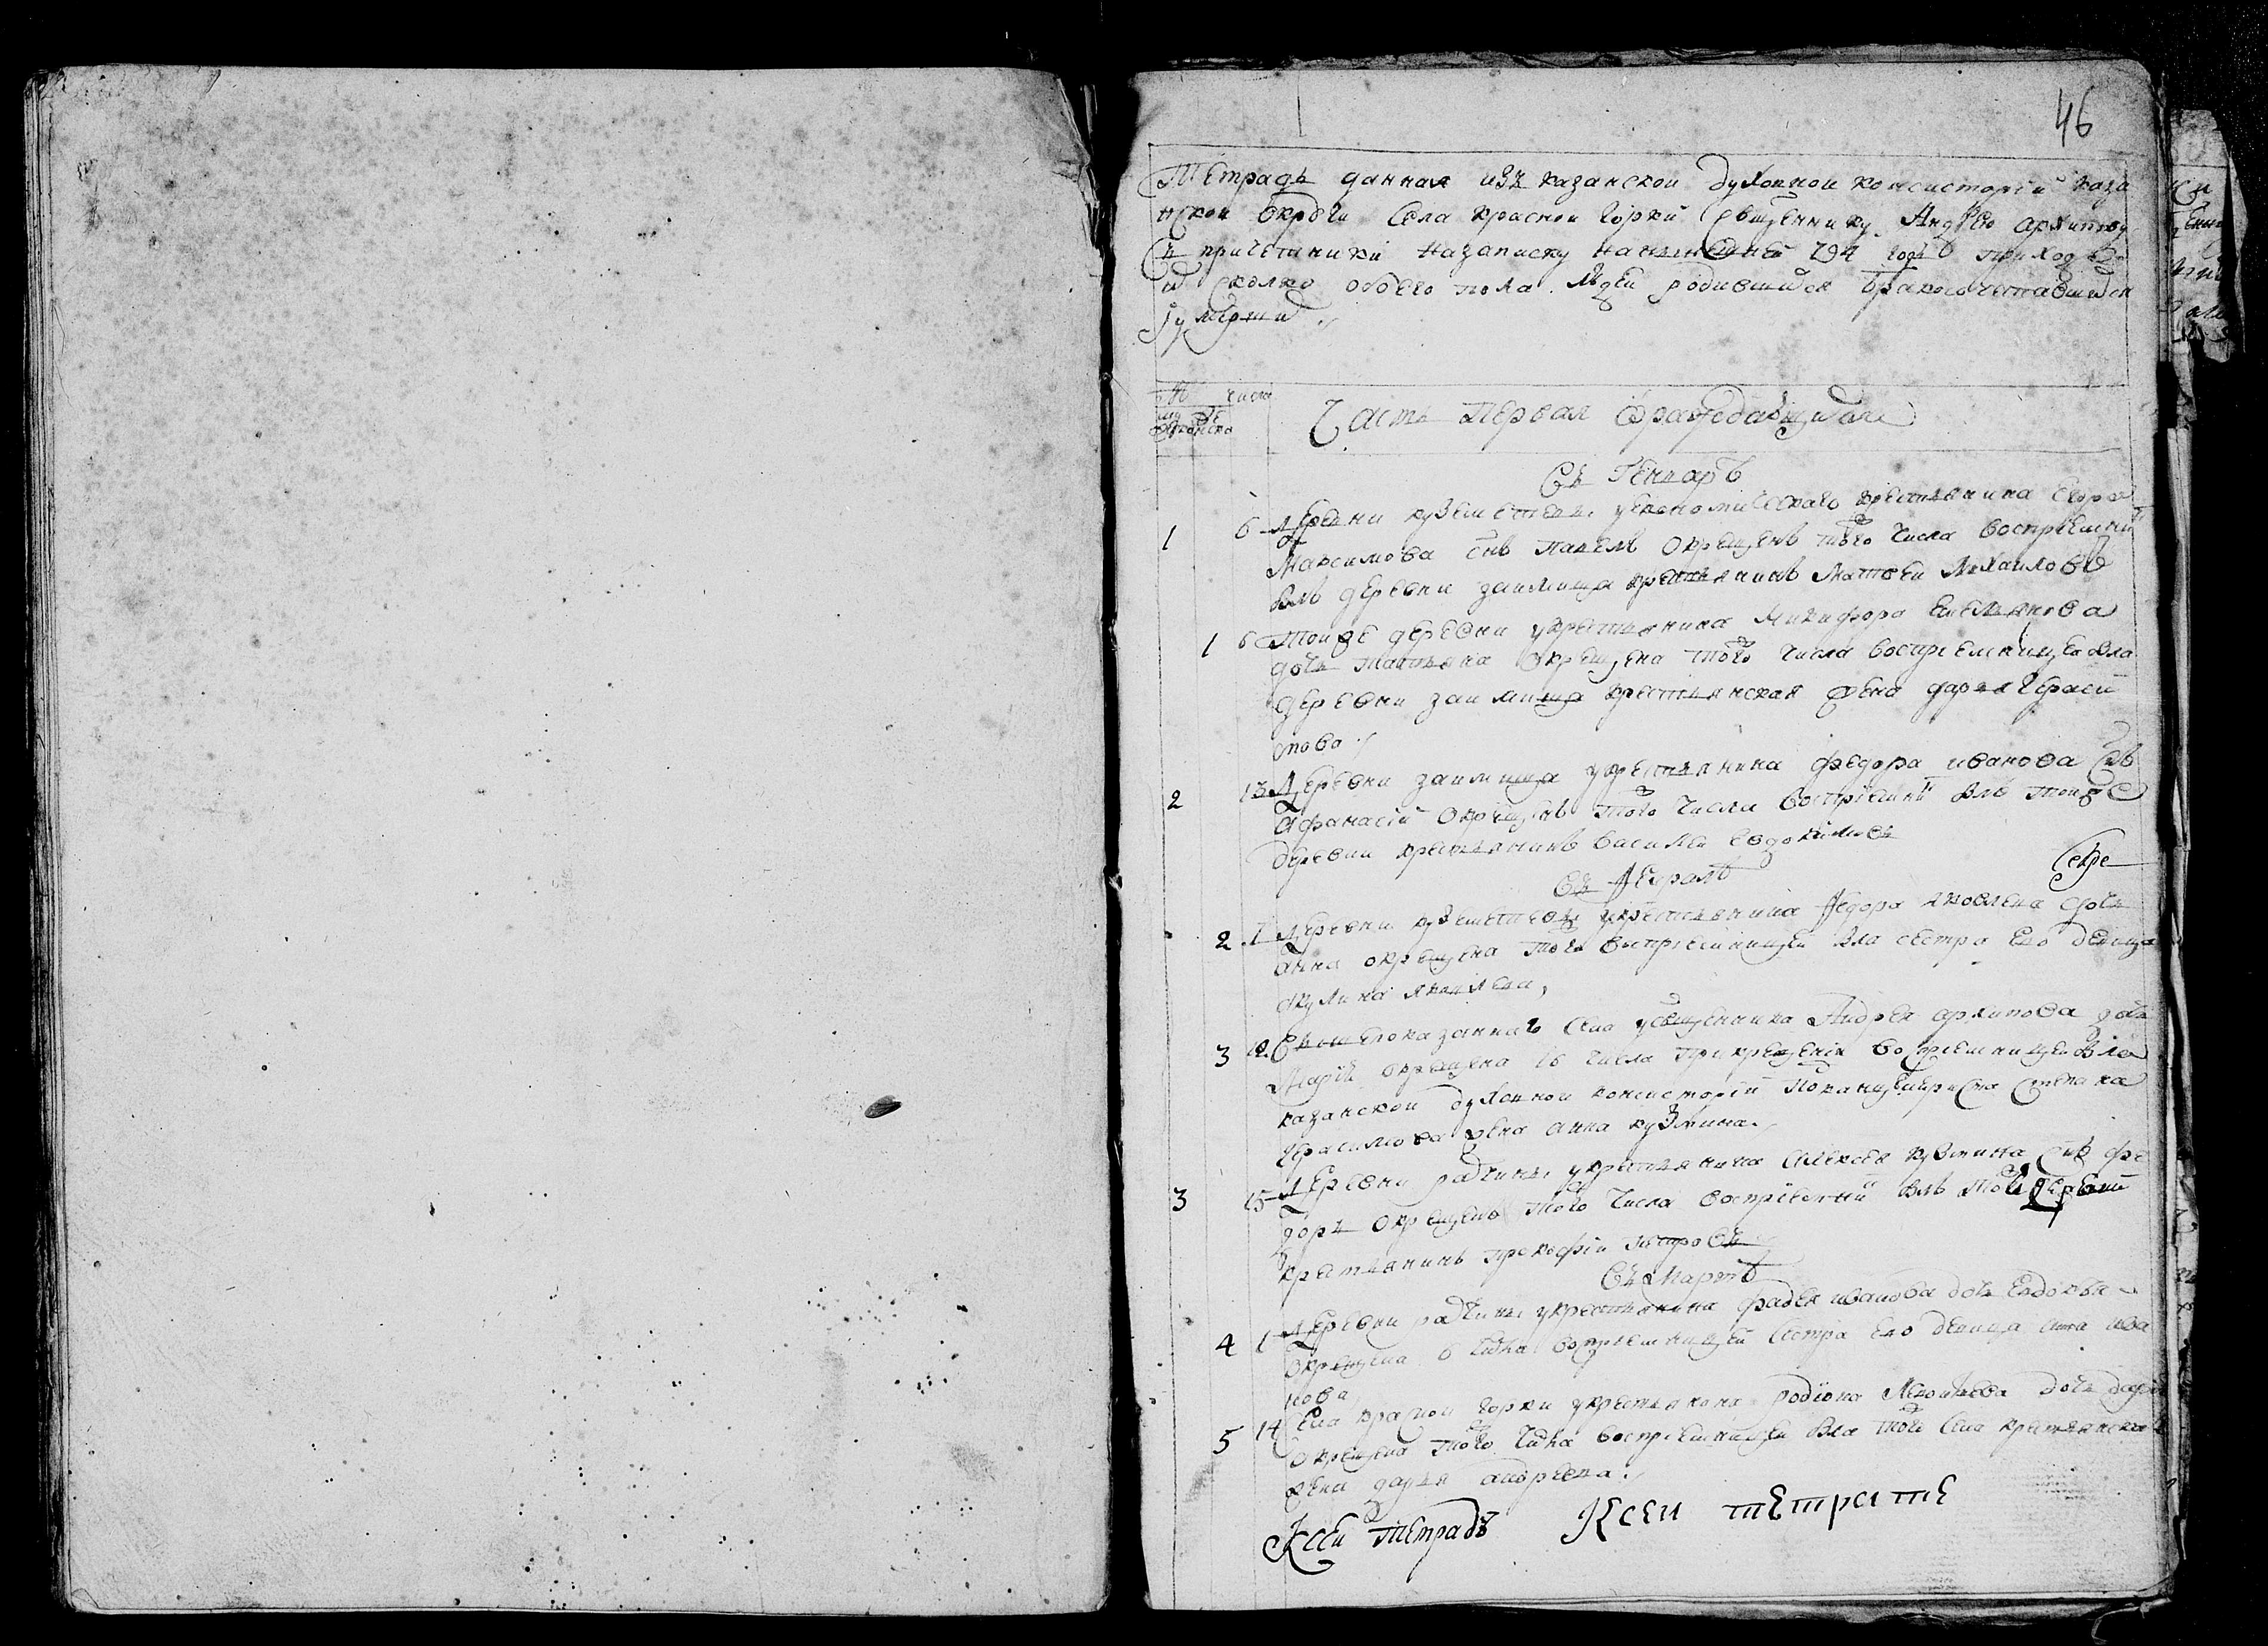 46
Тетрадь данная изъ казанской духовной консисторіи каза
нской округи села красной горки священнику Андрею архипову
съ причетники назаписку нанынешней 794 годъ о приход
и сколко обоего пола людей родившихся бракосочетавшихся
и умерши
число
Часть первая о раждавшихся
Въ Генваръ
1 6 деревни кузешетева у економическаго крестьянина егора
Максимова снъ павелъ окрещенъ того числа воспріемни
былъ деревни займища крестьянинъ Матвей Михайловъ
1 6 тоиже деревни у крестьянина Микифора емельянова
дочь татьяна окрещена того числа воспріемницей была
деревни займища крестьянская жена дарья Гераси
мова
2 13 Деревни займища у крестьянина федора иванова снъ
афанасій окрещенъ того числа воспріемни былъ тоиже
деревни крестьянинъ василей евдокимовъ
Секре
Въ Февралъ
2 1 Деревни кузешетева у крестьянина Федора яковлева дочь
анна окрещена того воспріемницей была сестра ево девица
акулина яковлева
3 Вышепоказаннаго села у священника Андрея архипова дочь
Марія окрещена 16 числа прикрещеніи воспріемницей была
казанской духовной консисторіи Поканцыляриста степана
Герасимова жена анна кузмина
3 15 Деревни у крестьянина алексея кузмина снъ фе
доръ окрещенъ того числа воспріемни былъ тоиже деревни
крестьянинъ прокофій петровъ
Въ Мартъ
4 1 Деревни у крестьянина фадея иванова дочь евдокея
окрещена 6 числа воспріемницей сестра ево девица анна ива
нова
5 14 Села красной горки у крестьянина родіона дочь дарья
окрещена того числа воспріемницей была того села крестьянска
жена дарья андреева
Ксей тетрадъ Ксеи тетрате